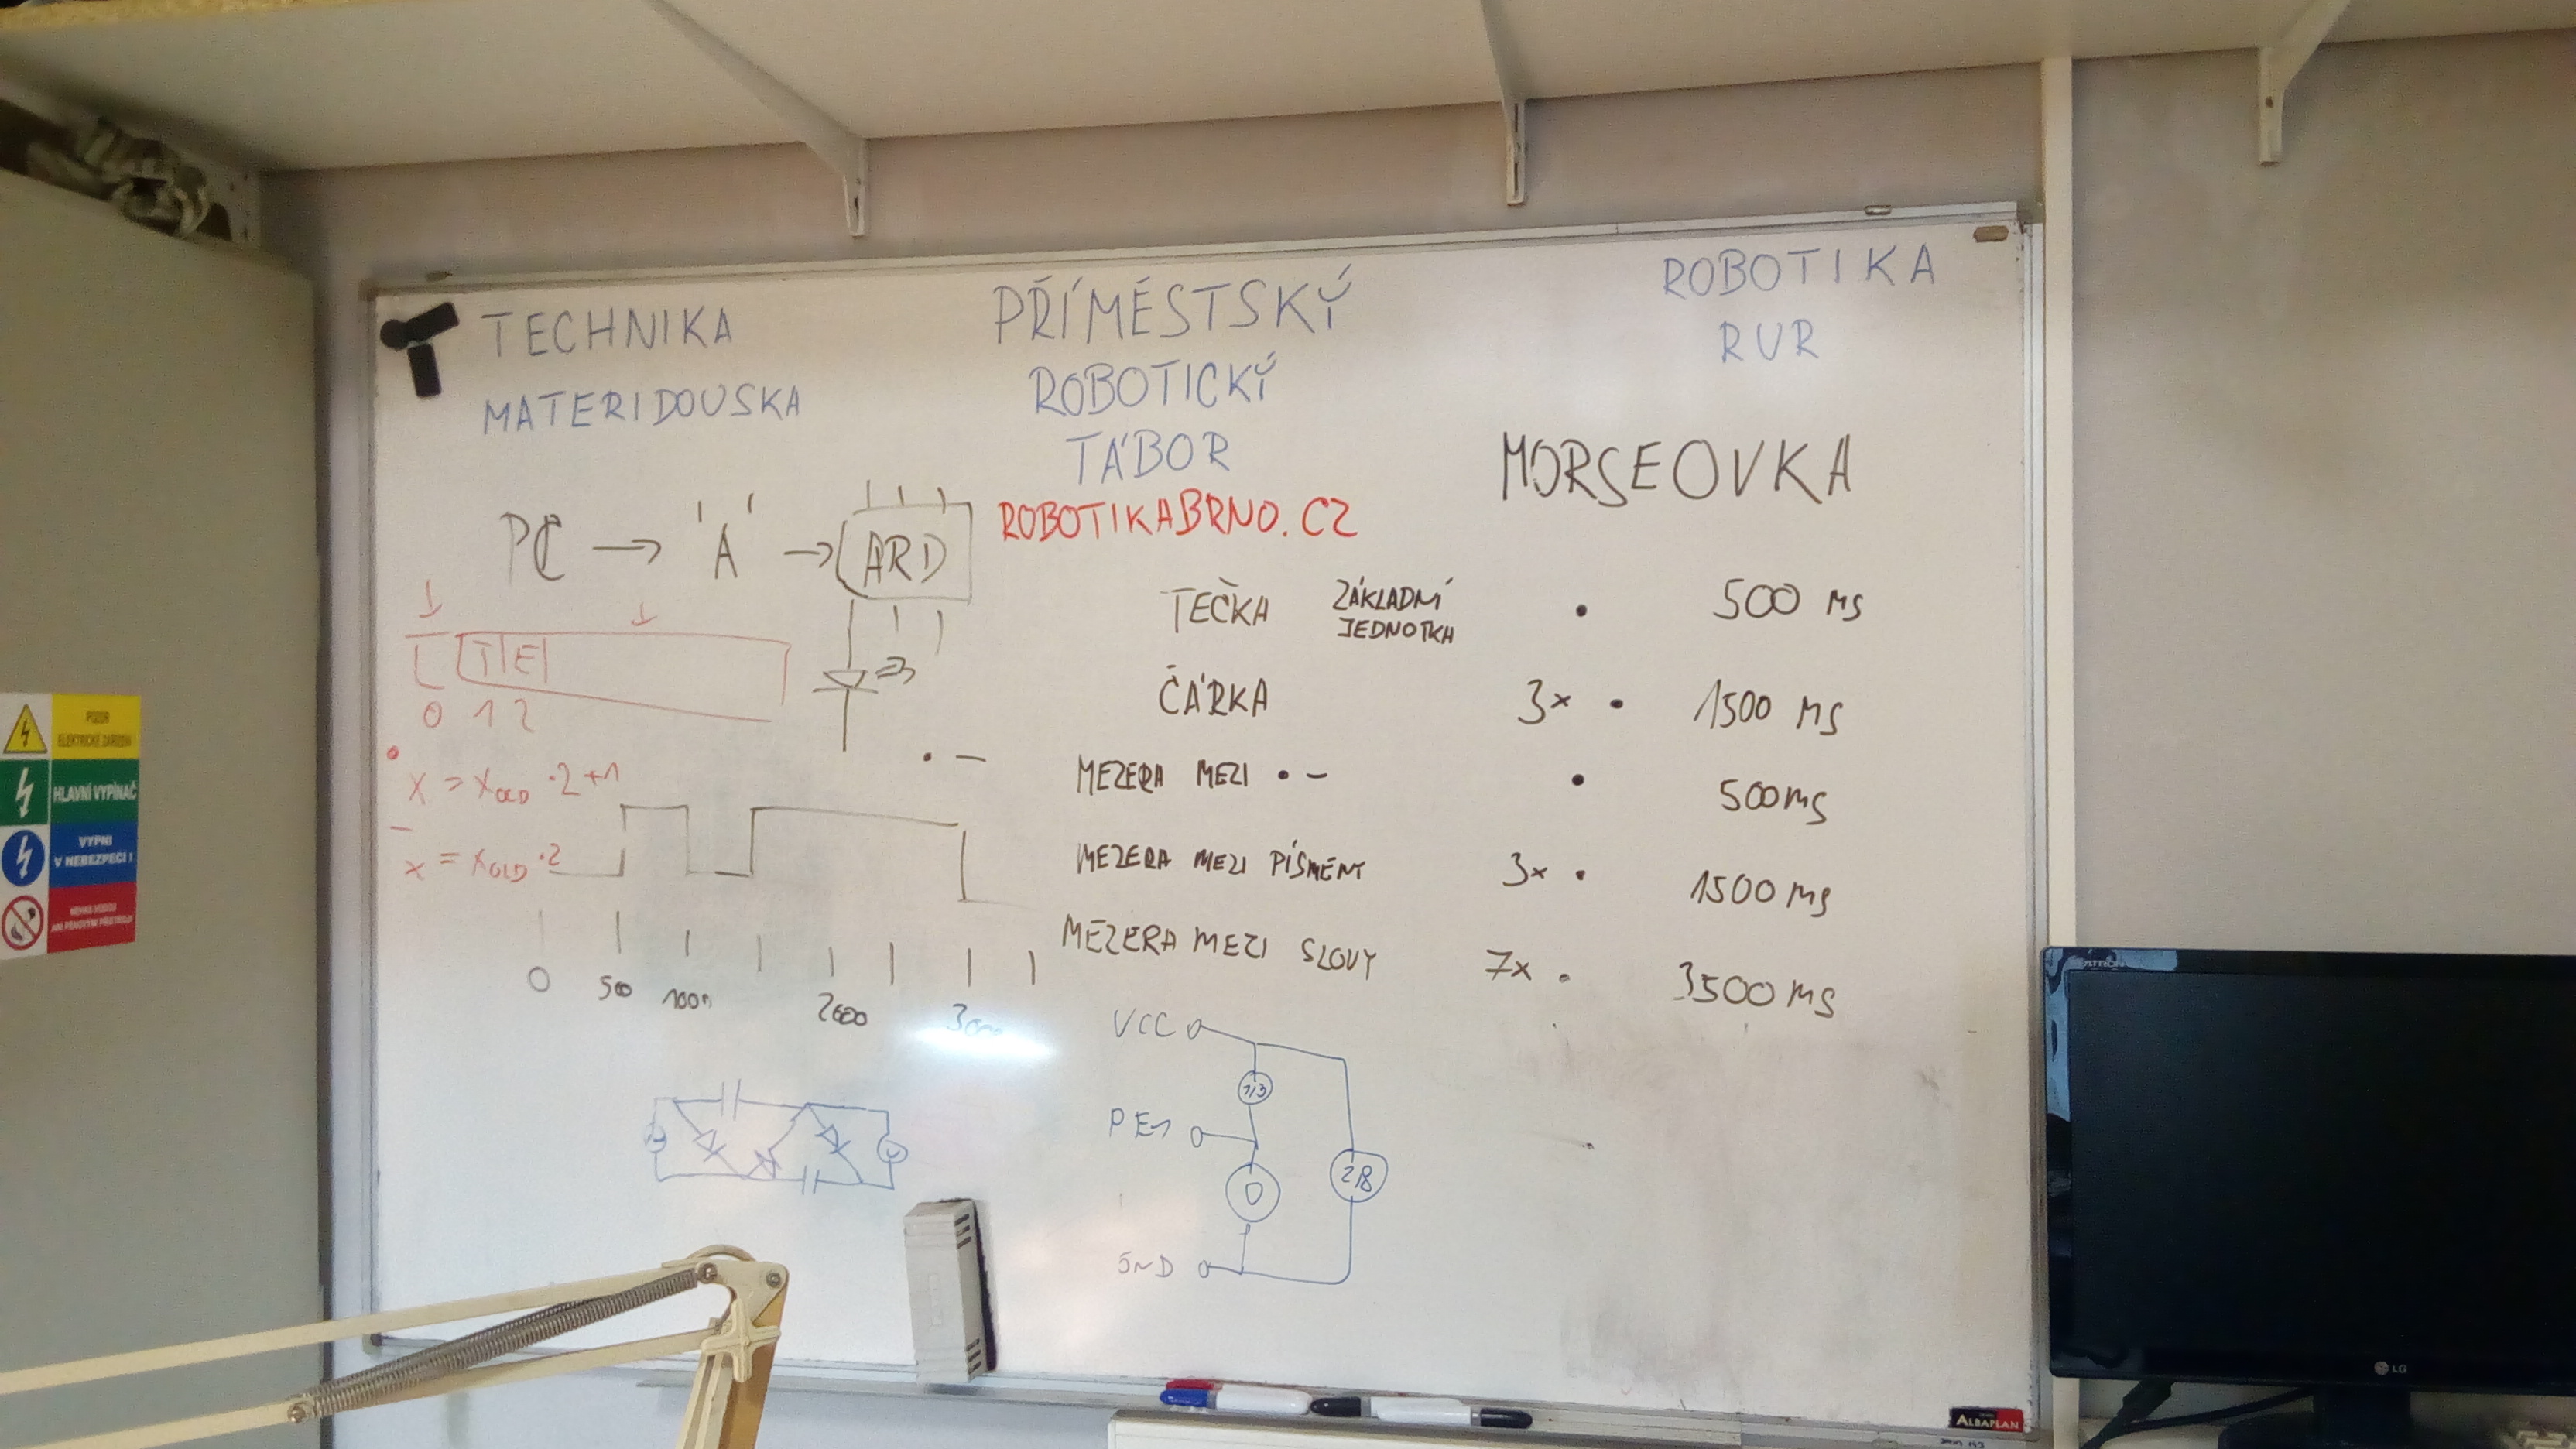 TECHNIKA
MATERIDOUSKA
PŘÍMĚSTSKÝ
ROBOTICKÝ
TÁBOR
ROBOTIKABRNO.CZ
ROBOTIKA
RUR
MORSEOVKA
PC → 'A' → ARD
T E
0 1 2
• x = XOLD · 2 + 1
– x = XOLD · 2
• –
0 500 1000 2000
TEČKA ZÁKLADNÍ JEDNOTKA • 500 MS
ČÁRKA 3x • 1500 MS
MEZERA MEZI • – • 500 MS
MEZERA MEZI PÍSMENY 3x • 1500 MS
MEZERA MEZI SLOVY 7x • 3500 MS
VCC
1/3
PE1
D
2/8
GND
POZOR
ELEKTRICKÉ ZAŘÍZENÍ
HLAVNÍ VYPÍNAČ
VYPNI
V NEBEZPEČÍ !
ALBAPLAN
LG